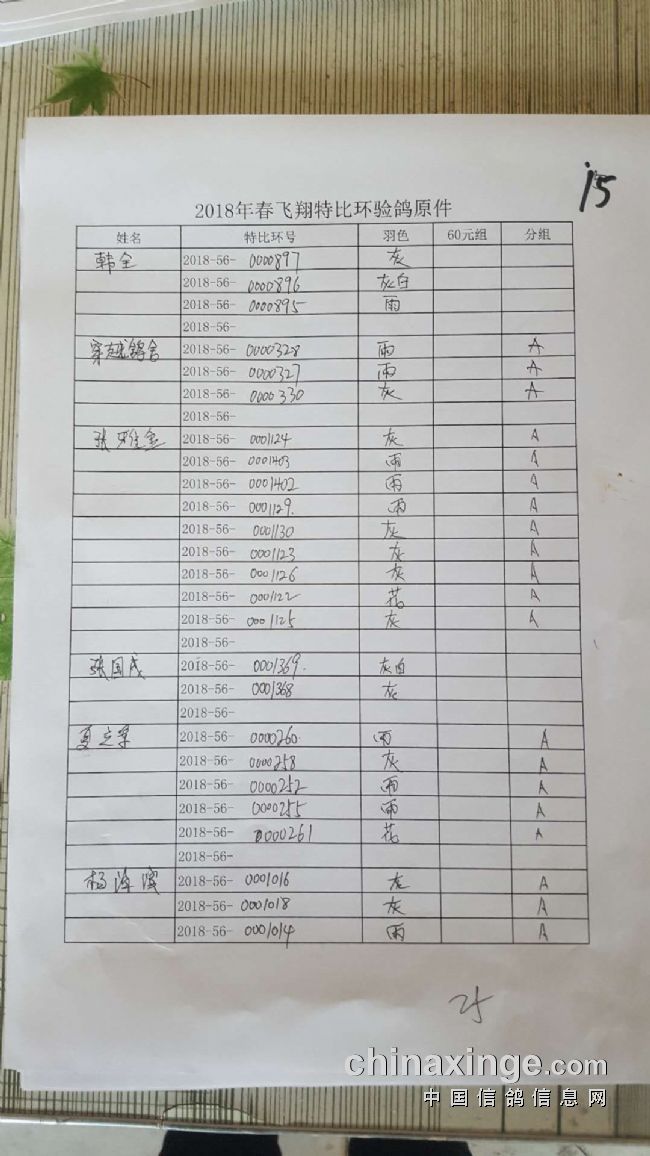 15
2018年春飞翔特比环验鸽原件
姓名 特比环号 羽色 60元组 分组
韩全 2018-56- 0000897 灰
2018-56- 0000896 灰白
2018-56- 0000895 雨
2018-56-
穿越鸽舍 2018-56- 0000328 雨 A
2018-56- 0000327 雨 A
2018-56- 0000330 灰 A
2018-56-
张 金 2018-56- 0001124 灰 A
2018-56- 0001403 雨 A
2018-56- 0001402 雨 A
2018-56- 0001129. 雨 A
2018-56- 0001130 灰 A
2018-56- 0001123 灰 A
2018-56- 0001126 灰 A
2018-56- 0001122 花 A
2018-56- 0001125 灰 A
2018-56-
张国成 2018-56- 0001369. 灰白
2018-56- 0001368 灰
2018-56-
夏立军 2018-56- 0000260 雨 A
2018-56- 0000258 灰 A
2018-56- 0000252 雨 A
2018-56- 0000255 雨 A
2018-56- 0000261 花 A
2018-56-
杨海滨 2018-56- 0001016 灰 A
2018-56- 0001018 灰 A
2018-56- 0001014 雨 A
25
chinaxinge.com
中国信鸽信息网